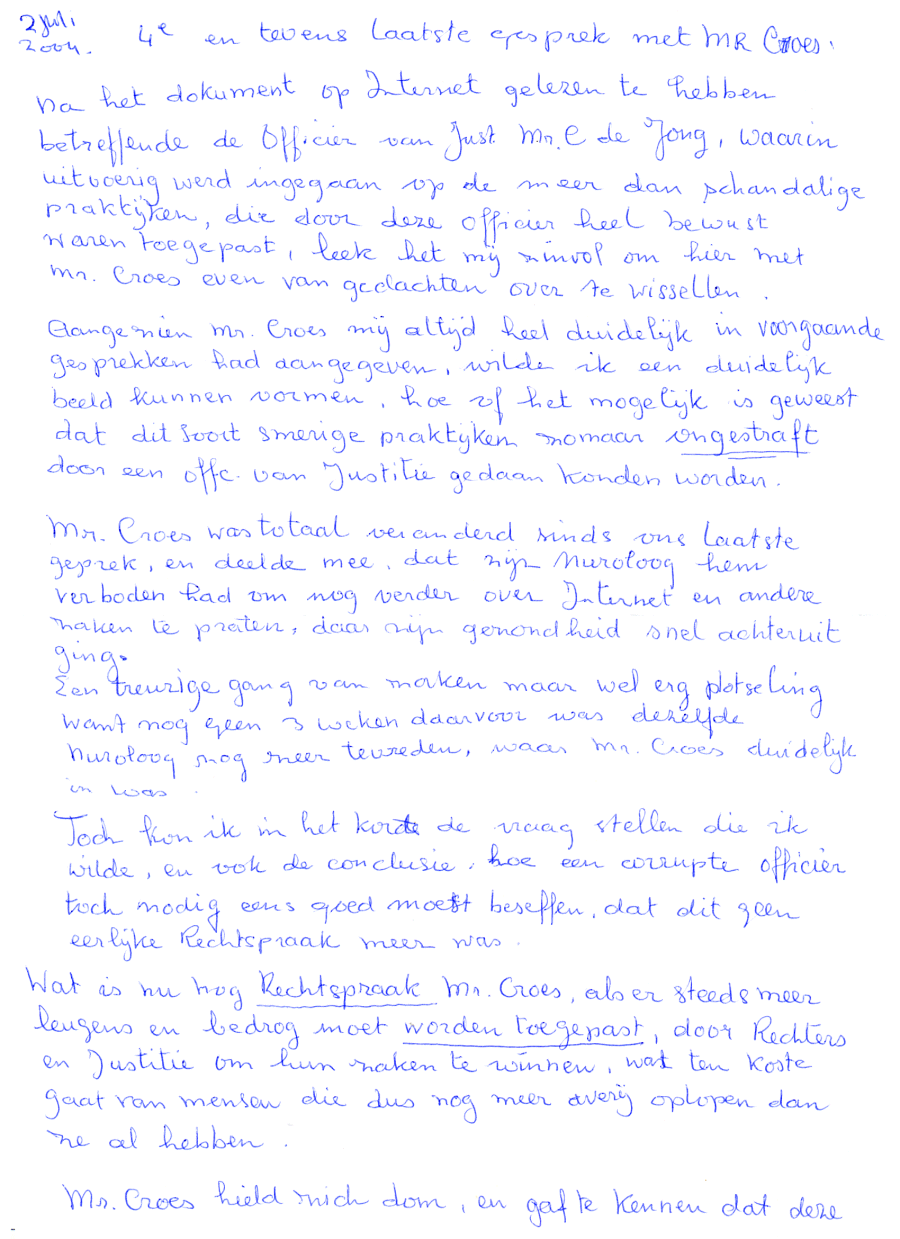 2 juli
2004.
4e en tevens laatste gesprek met MR Croes.
Na het dokument op Internet gelezen te hebben
betreffende de Officier van Just. Mr. C de Jong, waarin
uitvoerig werd ingegaan op de meer dan schandalige
praktijken, die door deze officier heel bewust
waren toegepast, leek het mij zinvol om hier met
Mr. Croes even van gedachten over te wissellen.
Aangezien Mr. Croes mij altijd heel duidelijk in voorgaande
gesprekken had aangegeven, wilde ik een duidelijk
beeld kunnen vormen, hoe of het mogelijk is geweest
dat dit soort smerige praktijken zomaar ongestraft
door een offc. van Justitie gedaan konden worden.
Mr. Croes was totaal veranderd sinds ons laatste
geprek, en deelde mee, dat zijn Nuroloog hem
verboden had om nog verder over Internet en andere
zaken te praten, daar zijn gezondheid snel achteruit
ging.
Een treurige gang van zaken maar wel erg plotseling
want nog geen 3 weken daarvoor was dezelfde
Nuroloog nog zeer tevreden, waar Mr. Croes duidelijk
in was.
Toch kon ik in het korte de vraag stellen die ik
wilde, en ook de conclusie, hoe een corrupte officier
toch nodig eens goed moest beseffen, dat dit geen
eerlijke Rechtspraak meer was.
Wat is nu nog Rechtspraak Mr. Croes, als er steeds meer
leugens en bedrog moet worden toegepast, door Rechters
en Justitie om hun zaken te winnen, wat ten koste
gaat van mensen die dus nog meer averij oplopen dan
ze al hebben.
Mr. Croes hield zich dom, en gaf te kennen dat deze